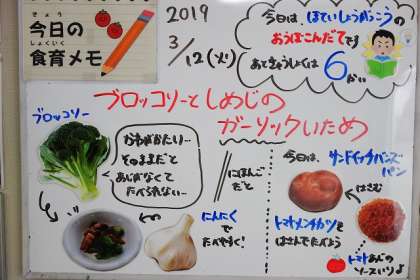 きょう
今日の
しょくいく
食育メモ
2019
3/12(火)
今日は、ほていしょうがっこうの
おうぼこんだてです
あときゅうしょくは6かい
ブロッコリーとしめじの
ガーリックいため
ブロッコリー
おやさいがかたい…
そのままだと
あじがなくて
たべられない…
にほんご
だと
にんにく
で
たべやすく!
今日は、サンドイッチバンズ
パン
はさむ
トマトメンチカツを
はさんでたべよう
トマトあじの
ソースいり